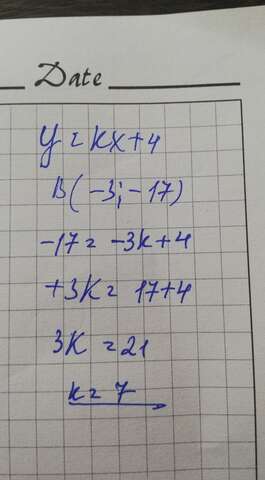 Date
y = kx+4
B(-3; -17)
-17 = -3k+4
+3k = 17+4
3k = 21
k = 7